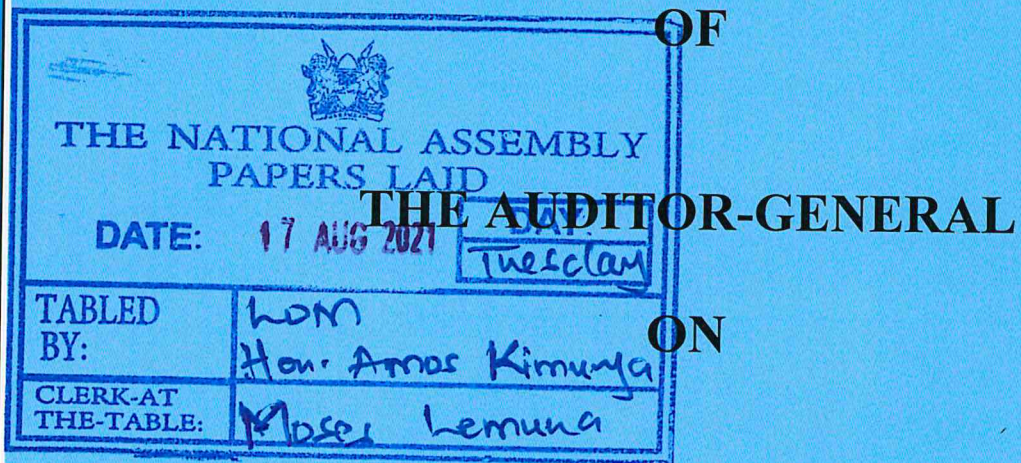 OF
THE NATIONAL ASSEMBLY
PAPERS LAID
THE AUDITOR-GENERAL
DATE: 17 AUG 2021 DAY:
Tuesday
TABLED BY: LOM
Hon. Amos Kimunya
ON
CLERK-AT THE-TABLE: Moses Lemuna